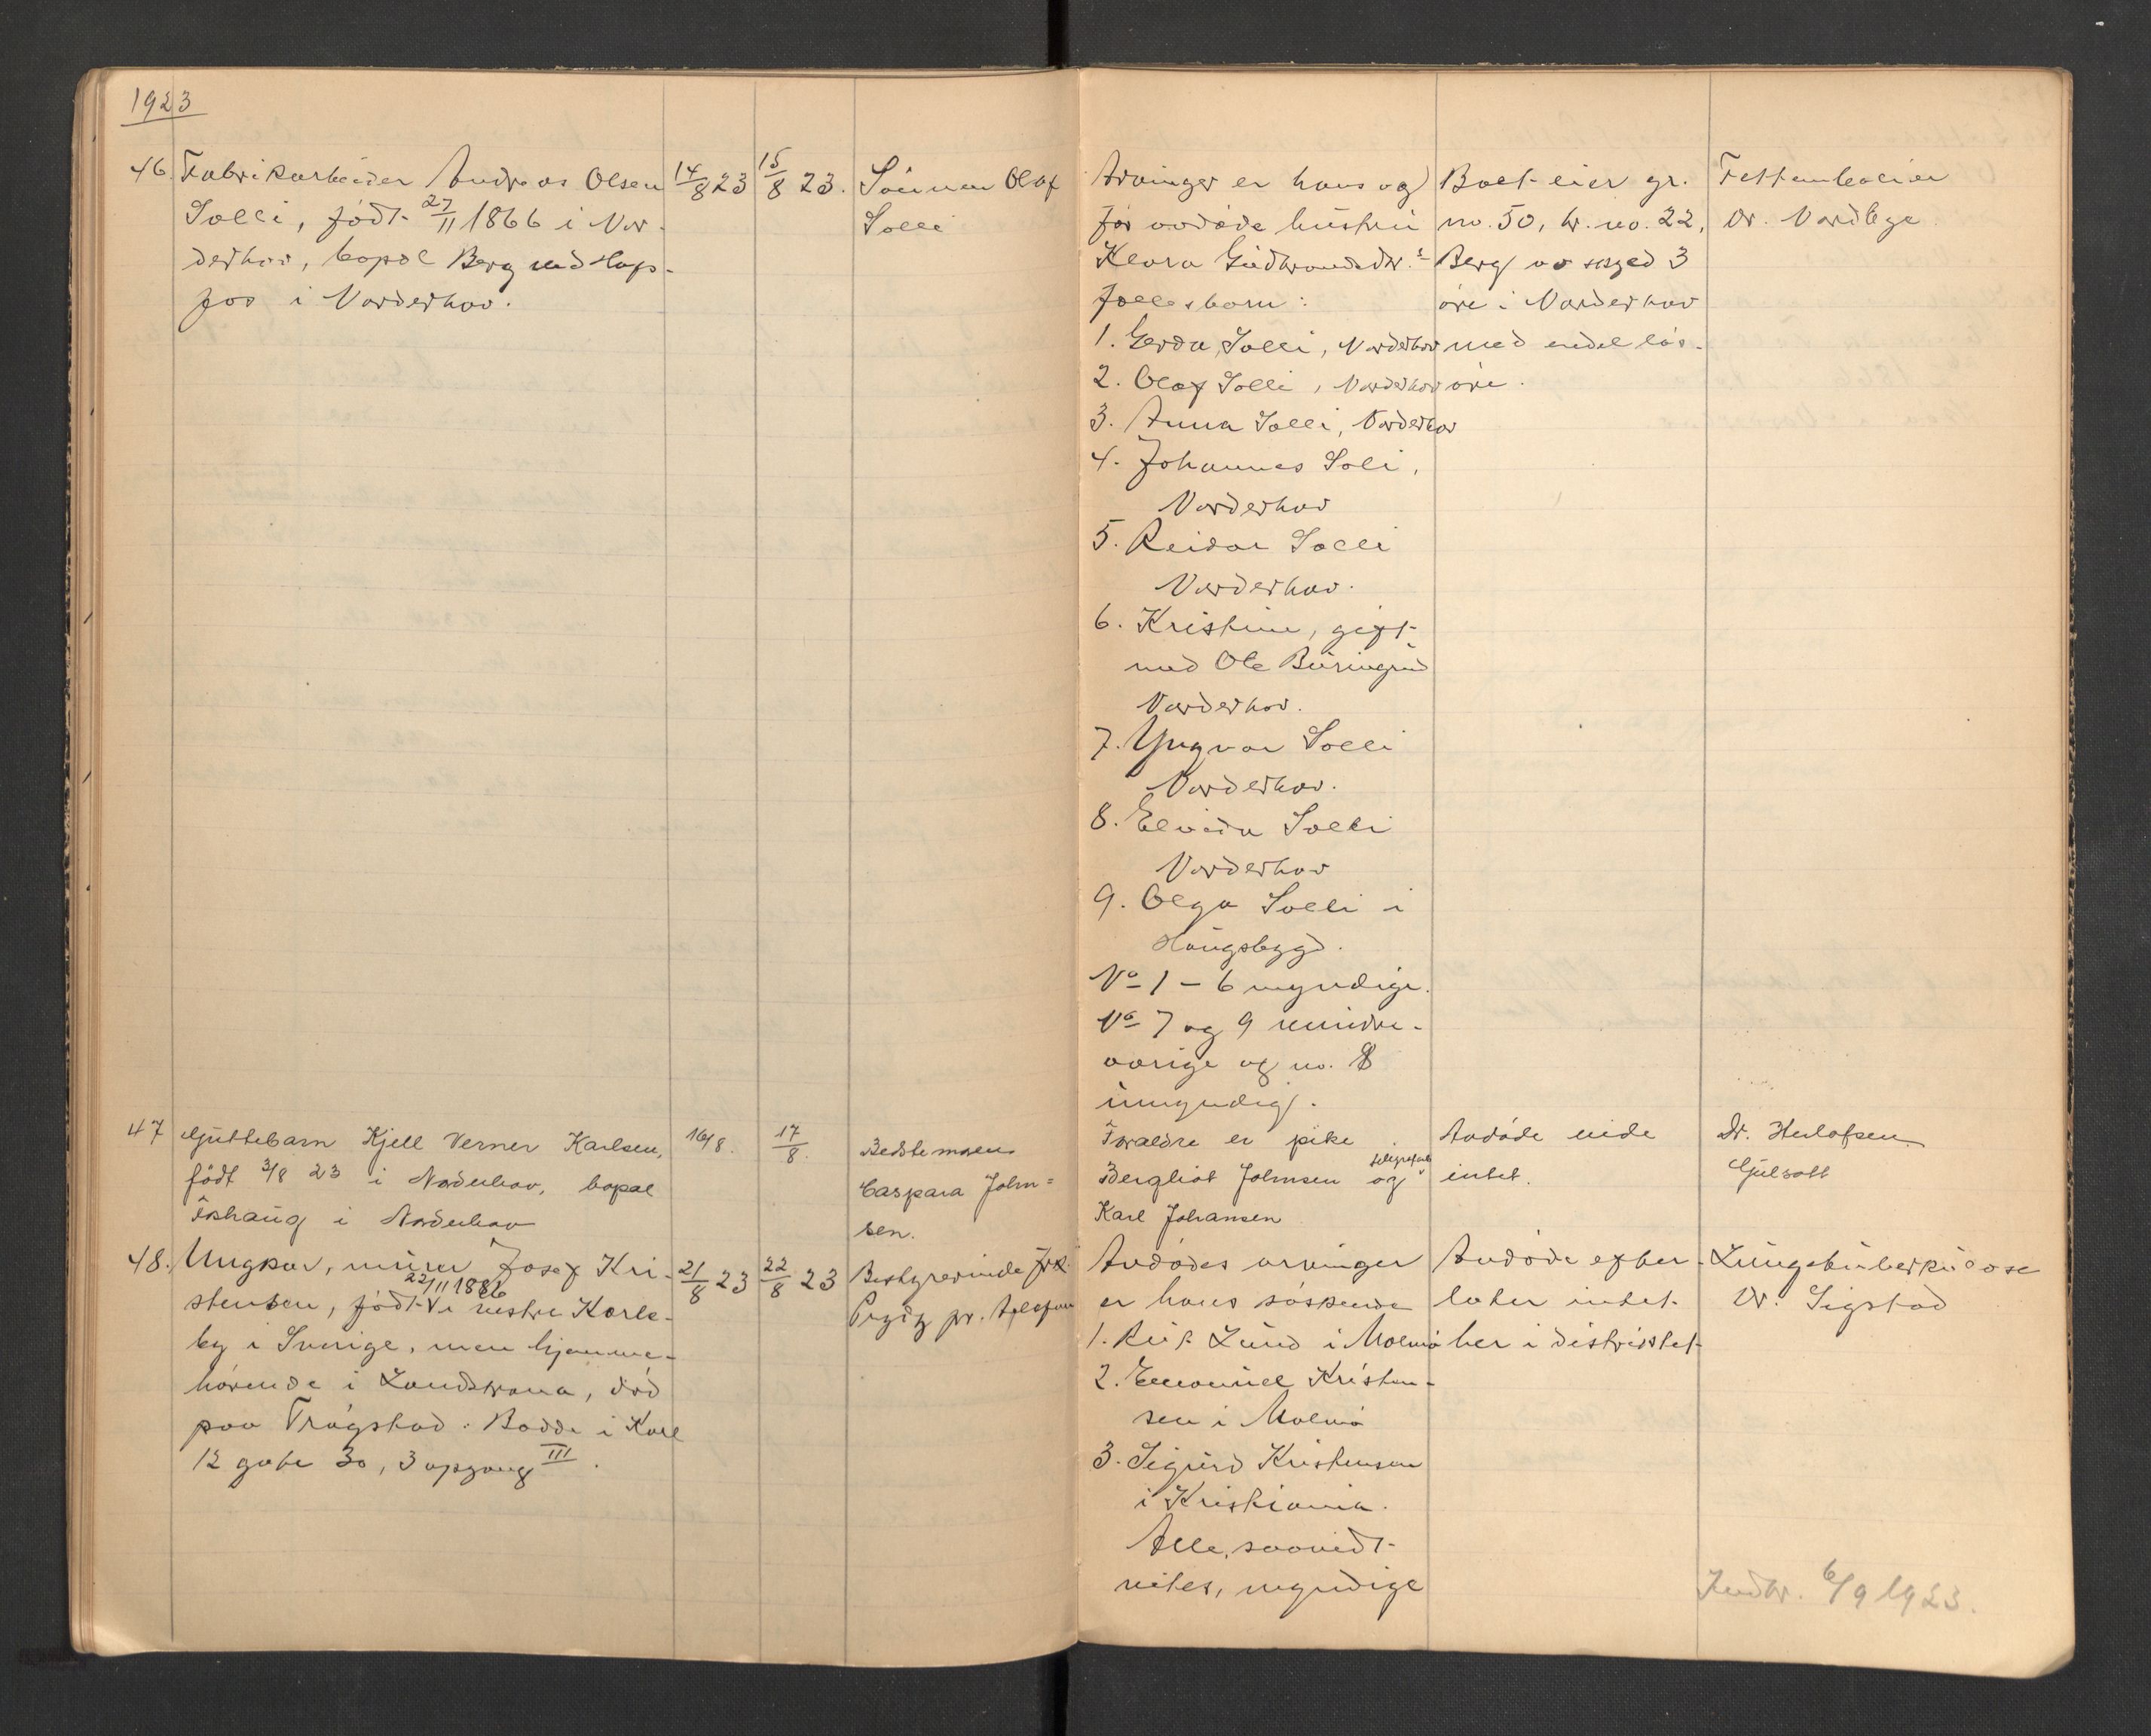 1923
46. Fabrikarbeider Andreas Olsen
Solli, födt 27/11 1866 i Nor-
derhov, bopæl Berg ved Hof-
fos i Norderhov.
14/8 23
15/8 23.
Sönnen Olaf
Solli
Arvinger er hans og
för avdöde hustru
Klara Gudbrandsdtr.s
fællesbarn:
1. Gerda Solli, Norderhov
2. Olaf Solli, Norderhov
3. Anna Solli, Norderhov
4. Johannes Soli,
Norderhov
5. Reidar Solli
Norderhov.
6. Kristine, gift
med Ole
Norderhov.
7. Yngvar Solli
Norderhov.
8. Elvida Solli
Norderhov
9. Olga Solli i
Haugsbygd.
No 1 – 6 myndige.
No 7 og 9 mindre-
aarige og no. 8
umyndig.
Boet eier gr.
no. 50, br. no. 22,
Berg av skyld 3
öre i Norderhov
med endel lös-
öre.
Fettemboli
Dr. Nordlage
47 Guttebarn Kjell Verner Karlsen,
födt 3/8 23 i Norderhov, bopæl
Åshaug i Norderhov
16/8.
17/8.
Bedstemoren
Caspara John=
sen.
Foraeldre er pike
Bergliot Johnsen og telegrafarb.
Karl Johansen
Avdöde eiede
intet.
Dr. Herlofsen
Gulsott
48. Ungkar, murer Josef Kri-
stensen, födt 22/11 1886 i vestre Karle-
by i Sverige, men hjemme-
hörende i Landskrona, död
paa Trögstad. Bodde i Karl
12 gate 30, 3 opgang III.
21/8 23
22/8 23
Bestyrerinde frk.
Prydz pr. telefon
Avdödes arvinger
er hans söskende
1. Rut Lund i Malmö
2. Emanuel Kristen-
sen i Malmö
3. Sigurd Kristensen
i Kristiania.
Alle, saavidt
vites, myndige
Avdöde efter-
later intet
her i distriktet
Lungetuberkulose
Dr. Sigstad
Indb. 6/9 1923.